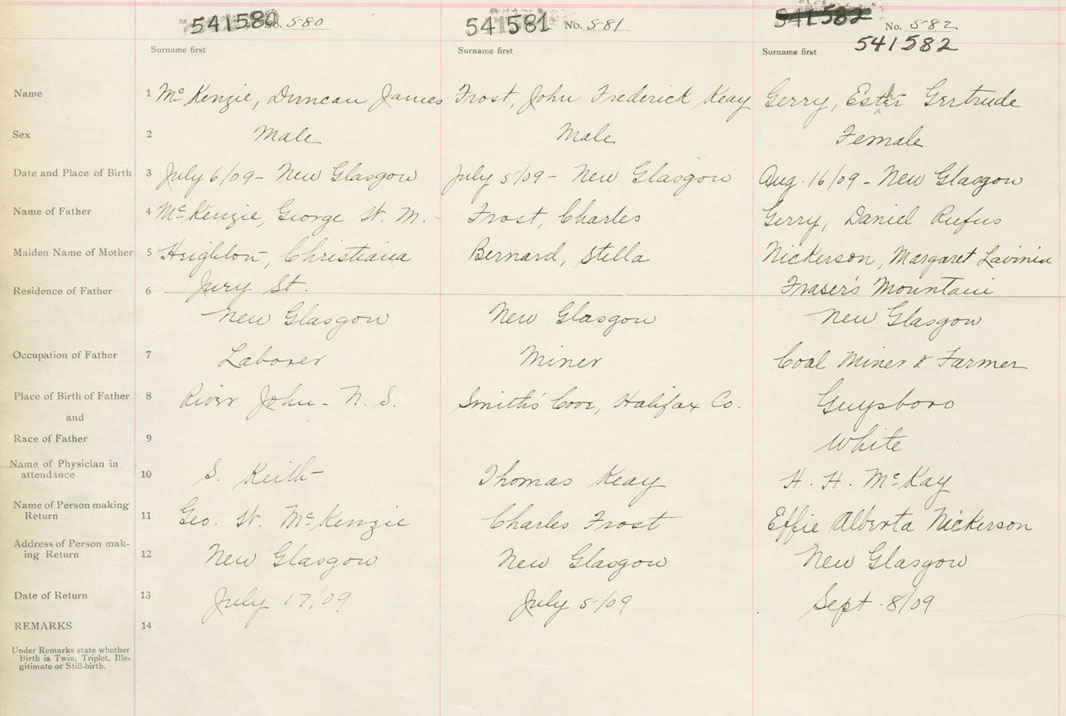 541580 No. 580 541581 No. 581 541582 No. 582
Surname first Surname first Surname first 541582
Name 1 McKenzie, Duncan James Frost, John Frederick Keay Gerry, Esther Gertrude
Sex 2 Male Male Female
Date and Place of Birth 3 July 6/09 - New Glasgow July 5/09 - New Glasgow Aug. 16/09 - New Glasgow
Name of Father 4 McKenzie, George St. M. - Frost, Charles Gerry, Daniel Rufus
Maiden Name of Mother 5 Heighton, Christiana Bernard, Stella Nickerson, Margaret Lavinia
Residence of Father 6 Jury St. Fraser's Mountain
New Glasgow New Glasgow New Glasgow
Occupation of Father 7 Laborer Miner Coal Miner & Farmer
Place of Birth of Father 8 River John - N. S. Smith's Cove, Halifax Co. Guysboro
and
Race of Father 9 White
Name of Physician in
attendance 10 S. Keith Thomas Keay H. H. McKay
Name of Person making
Return 11 Geo. St. McKenzie Charles Frost Effie Alberta Nickerson
Address of Person mak-
ing Return 12 New Glasgow New Glasgow New Glasgow
Date of Return 13 July 17/09 July 5/09 Sept. 8/09
REMARKS 14
Under Remarks state whether
Birth is Twin, Triplet, Ille-
gitimate or Still-birth.